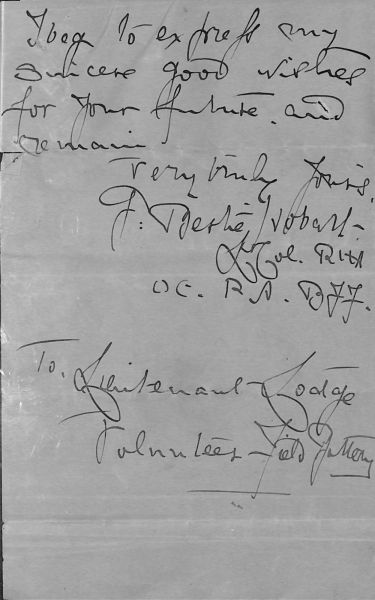 I beg to express my
sincere good wishes
for your future. and
remain
Very truly yours.
Lt Col. RHA
OC. R.A. BFF.
To. Lieutenant Lodge
Volunteer Field Battery